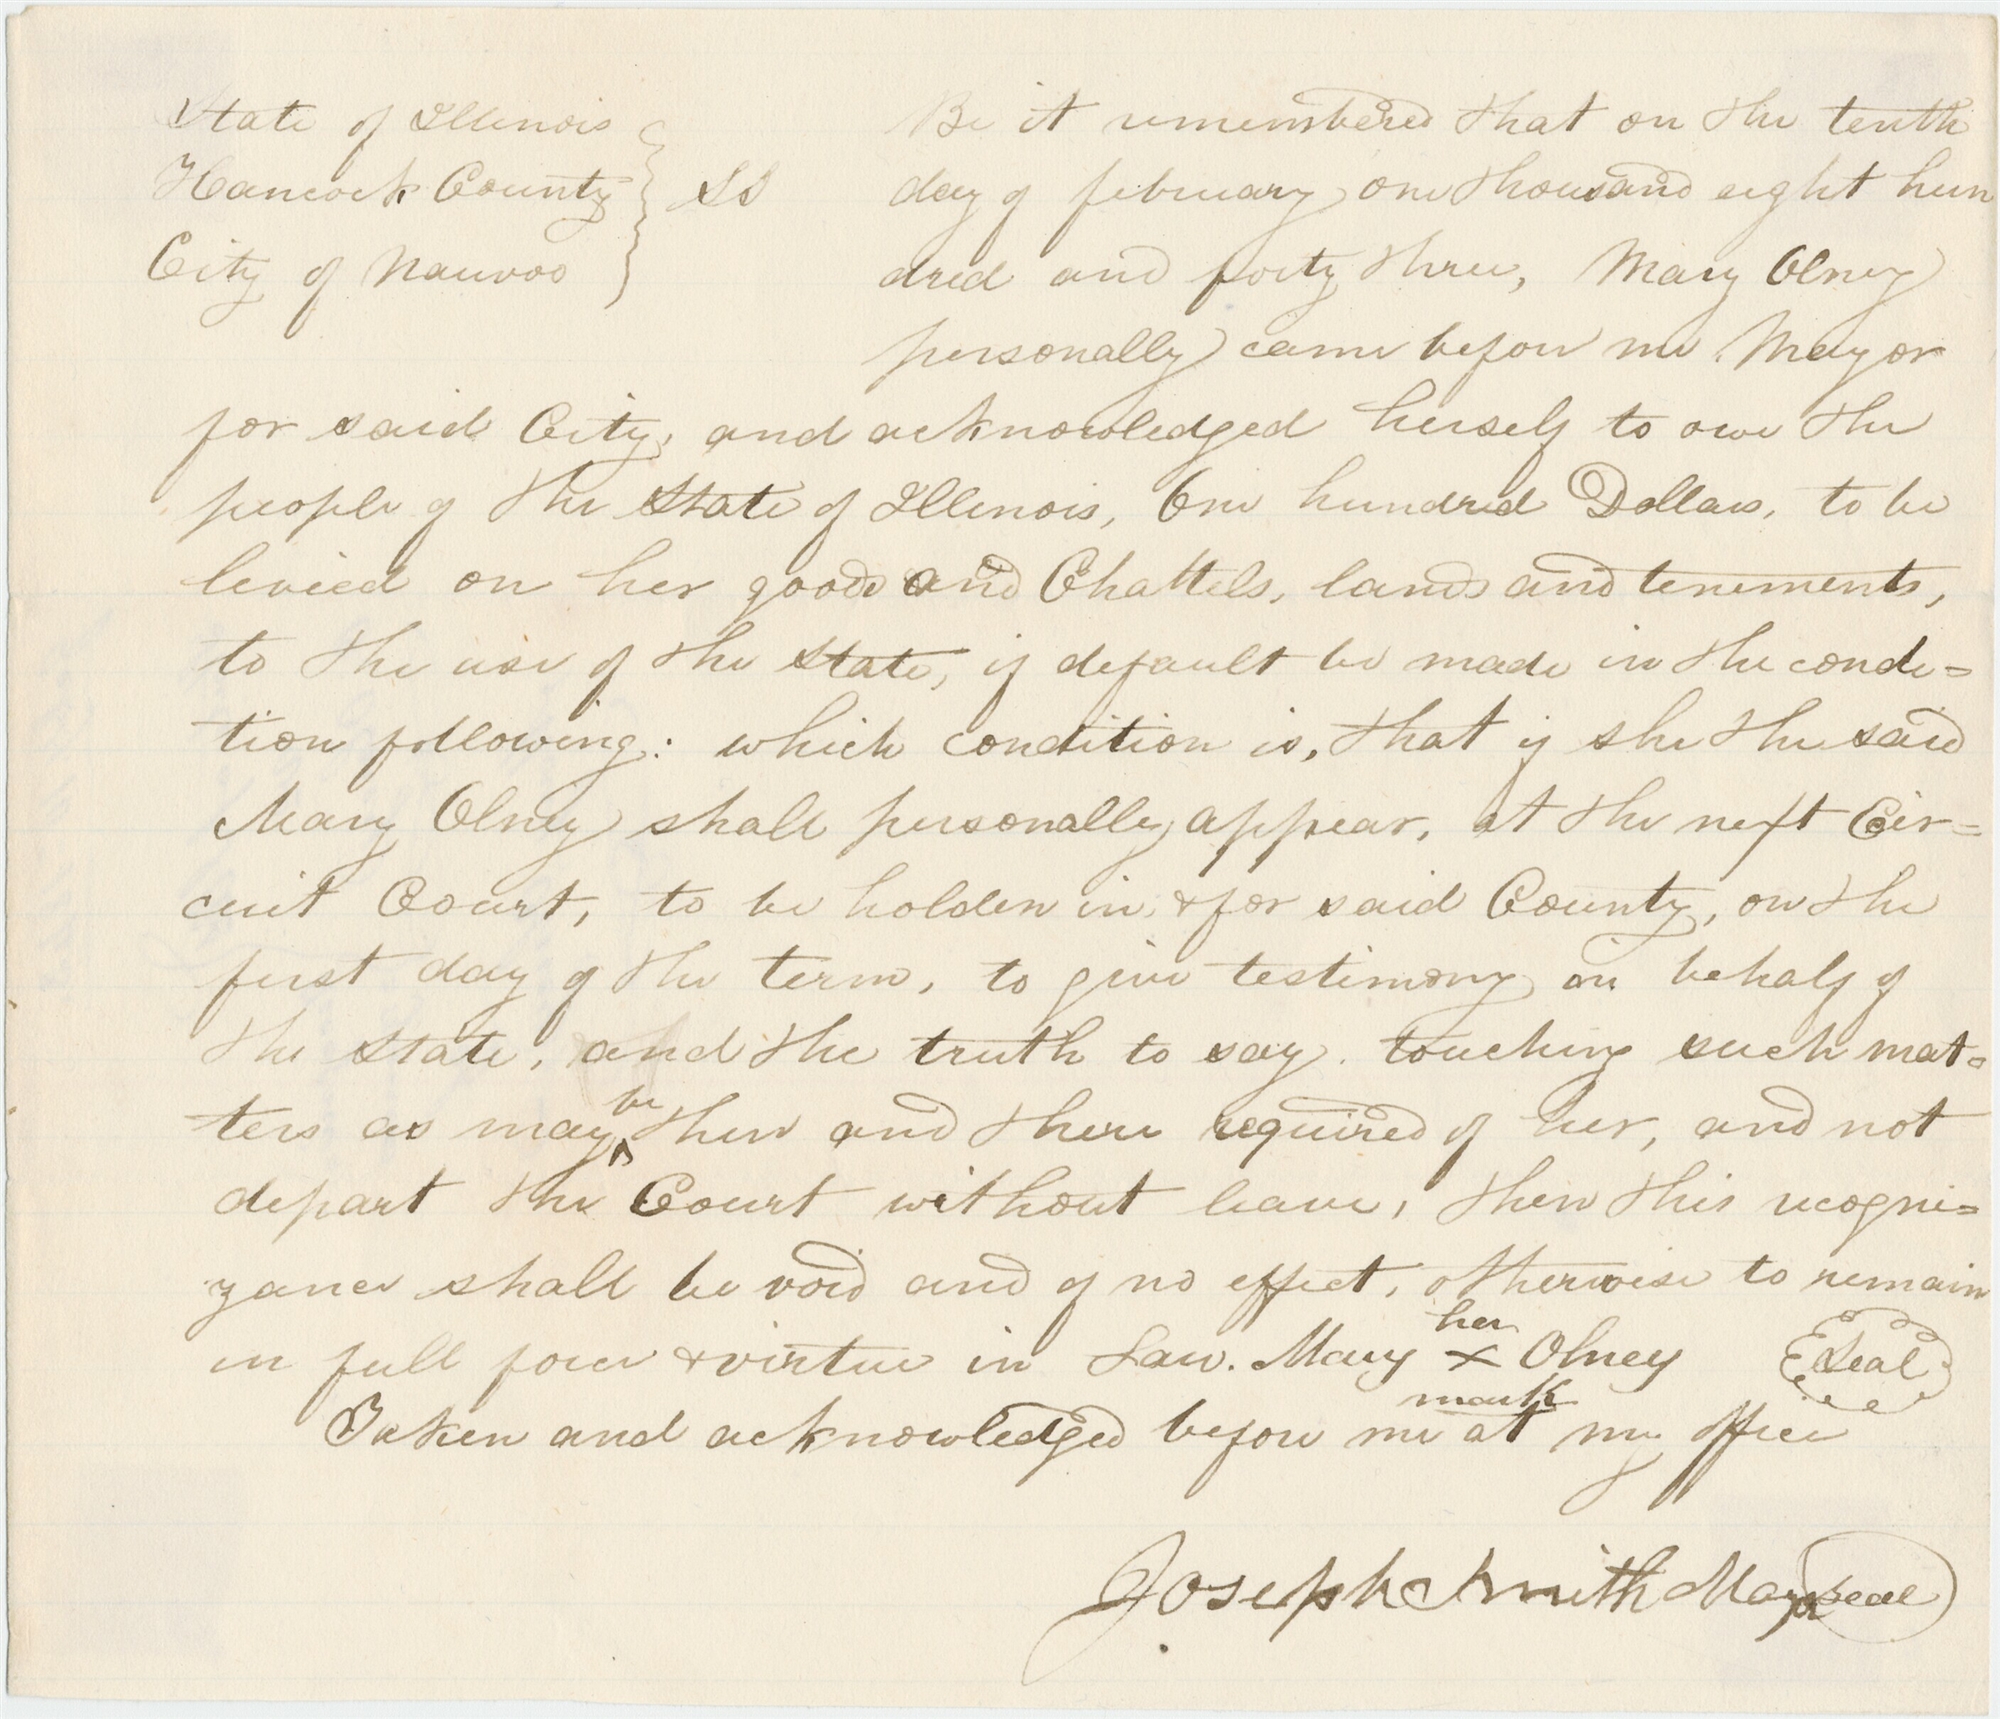 State of Illinois
Hancock County } SS
City of Nauvoo
Be it remembered that on the tenth
day of february one thousand eight hun
dred and forty three, Mary Olney
personally came before me Mayor
for said City, and acknowledged herself to owe the
people of the State of Illinois, One hundred Dollars, to be
levied on her goods and Chattels, lands and tenements,
to the use of the State, if default be made in the condi=
tion following: which condition is, that if she the said
Mary Olney shall personally appear, at the next Cir=
cuit Court, to be holden in & for said County, on the
first day of the term, to give testimony in behalf of
the State, and the truth to say touching such mat=
ters as may be then and there required of her, and not
depart the Court without leave, then this recogni=
zance shall be void and of no effect, otherwise to remain
in full force & virtue in Law. Mary her X mark Olney Seal
Taken and acknowledged before me at my office
Joseph Smith Mayor Seal